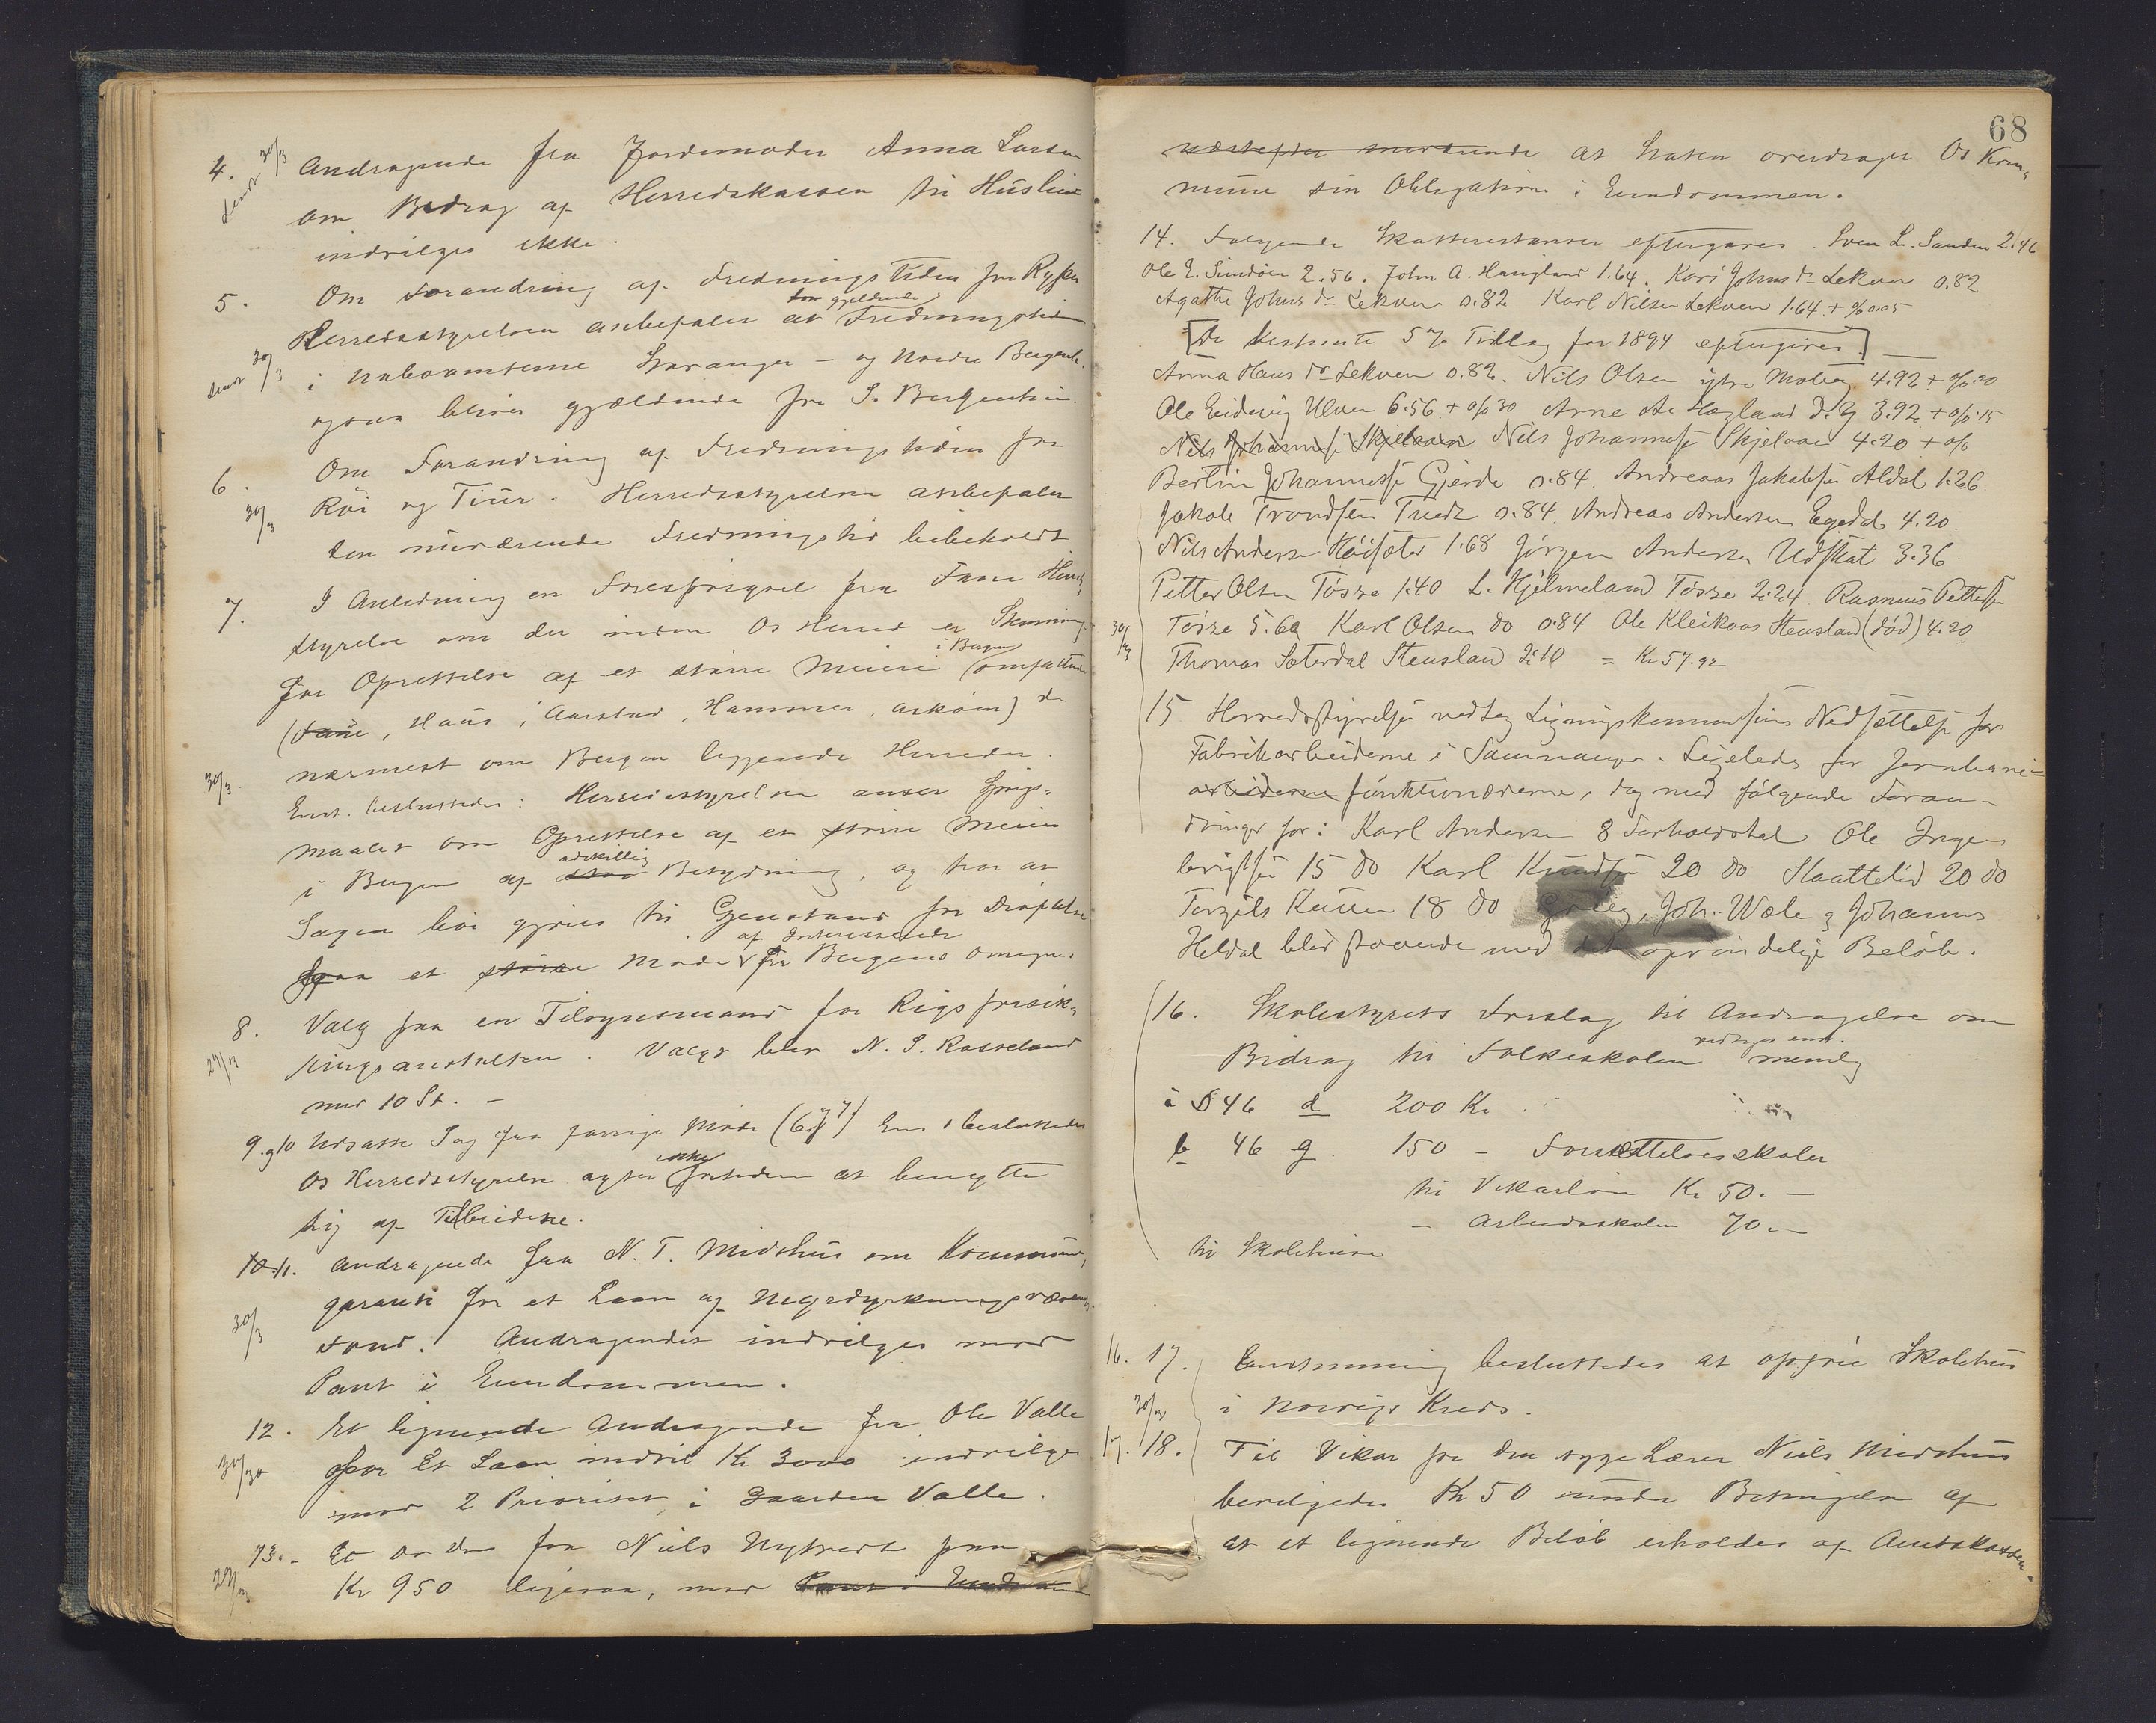 4. 30/3 Andragende fra Jordemoder Anna Larsen
sendt om Bidrag af Herredskassen til Husleie
indvilges ikke.
5. Om Forandring af Fredningstiden for Ryper
som gjeldende
Herredsstyrelsen anbefaler at Fredningstiden
sendt 30/3 i naboamterne Stavanger – og Nordre Bergenh.
ogsaa bliver gjældende for S. Bergenhus.
6. Om Forandring af Fredningstiden for
30/3 Röi og Tiur. Herredsstyrelsen anbefaler
den nuværende Fredningstid bibeholdt
7. I Anledning en Forespörgsel fra Fane Herreds
styrelse om der inden Os Herred er Stemning
i Bergen
for Oprettelse af et större Meieri omfattende
(Fane, Haus, Aarstad, Hammer, Askøen) de
nærmest om Bergen liggende Herreder.
30/3 Enst. besluttedes: Herredsstyrelsen anser Spörgs-
maalet om Oprettelse af et större Meieri
adskillig
i Bergen af stor Betydning, og tror at
Sagen bör gjöres til Gjenstand for Dröftelse
af Interesserede
paa et större Möde fra Bergens Omegn.
8. Valg paa en Tilsynsmand for Rigsforsik-
27/3 ringsanstalten. Valgt blev N. S. Rosseland
med 10 St. –
9 og 10 Udsatte Sag fra forrige Möde (6 og 7) Enst. besluttedes
ikke
Os Herredsstyrelse agter fortiden at benytte
sig af Tilbudene.
10. 11. Andragende fra N. T. Midthus om Kommune
30/3 garanti for et Laan af Myrdyrkningsvæsenets
Fond. Andragendet indvilges mod
Pant i Eiendommen.
12. Et lignende Andragende fra Ole Valle
30/30 for Et Laan indtil Kr 3000 indvilges
mod 2 Prioritet i Gaarden Valle.
13. Et do do fra Niels Nytvedt paa
27/3 Kr 950 ligesaa, mod Pant i Eiendommen
68
at Staten overdrager Os Kom-
mune sin Obligation i Eiendommen.
14. Følgende Skatterestanser eftergaves. Sven L. Sanden 2.46
Ole E. Sundöen 2.56. John A. Haugland 1.64. Kari Johns dr Lekven 0.82
Agathe Johns dr Lekven 0.82 Karl Nilsen Lekven 1.64 + % 0.05
[De bestemte 5 % Tillæg for 1894 eftergives]
Anna Hans dr Lekven 0.82. Nils Olsen ytre Moberg 4.92 + % 20
Ole Endevig Ulven 6.56 + % 30 Arne A. Hægland d. y 3.92 + % 15
Nils Johannesse Skjelaaen Nils Johannesse Skjelaaen 4.20 + %
Bertin Johannesse Gjerde 0.84. Andreas Jakobsen Aldal 1.26
Jakob Trondsen Tvedt 0.84. Andreas Andersen Egedal 4.20
Nils Andersen Höisæter 1.68 Jörgen Andersen Udskat 3.36
Petter Olsen Tösse 1.40 L. Hjelmeland Tösse 2.24 Rasmus Pettersen
30/3 Tösse 5.60 Karl Olsen do 0.84 Ole Kleikaas Stensland (död) 4.20
Thomas Sæterdal Stensland 2.10 = Kr 57.92
15 Herredsstyrelsen vedtog Ligningskommissionens Nedsættelse for
Fabrikarbeiderne i Samnanger. Ligeledes for Jernbane-
arbeiderne funktionærerne, dog med fölgende Foran-
dringer for: Karl Andersen 8 Forholdstal Ole Inge-
brigtsen 15 do Karl Knudsen 20 do Slaattelid 20 do
Torgils Kuven 18 do Grieg, Joh. Wæle og Johannes
Heldal blev staaende med det oprindelige Belöb.
16. Skolestyrets Forslag til Andragelse om
vedtoges enst.
Bidrag til Folkeskolen nemlig
a § 46 d 200 Kr
b 46 g 150 – Fortsættelsesskoler
til Vikarlön Kr 50. –
– Arbeidsskolen 70. –
til Skolehuse
16. 17. Enstemmig besluttedes at opföre Skolehus
30/3 i Norvigs Kreds.
17. 18. Til Vikar for den syge Lærer Niels Midthus
bevilgedes Kr 50 under Betingelse af
at et lignende Belöb erholdes af Amtskassen.